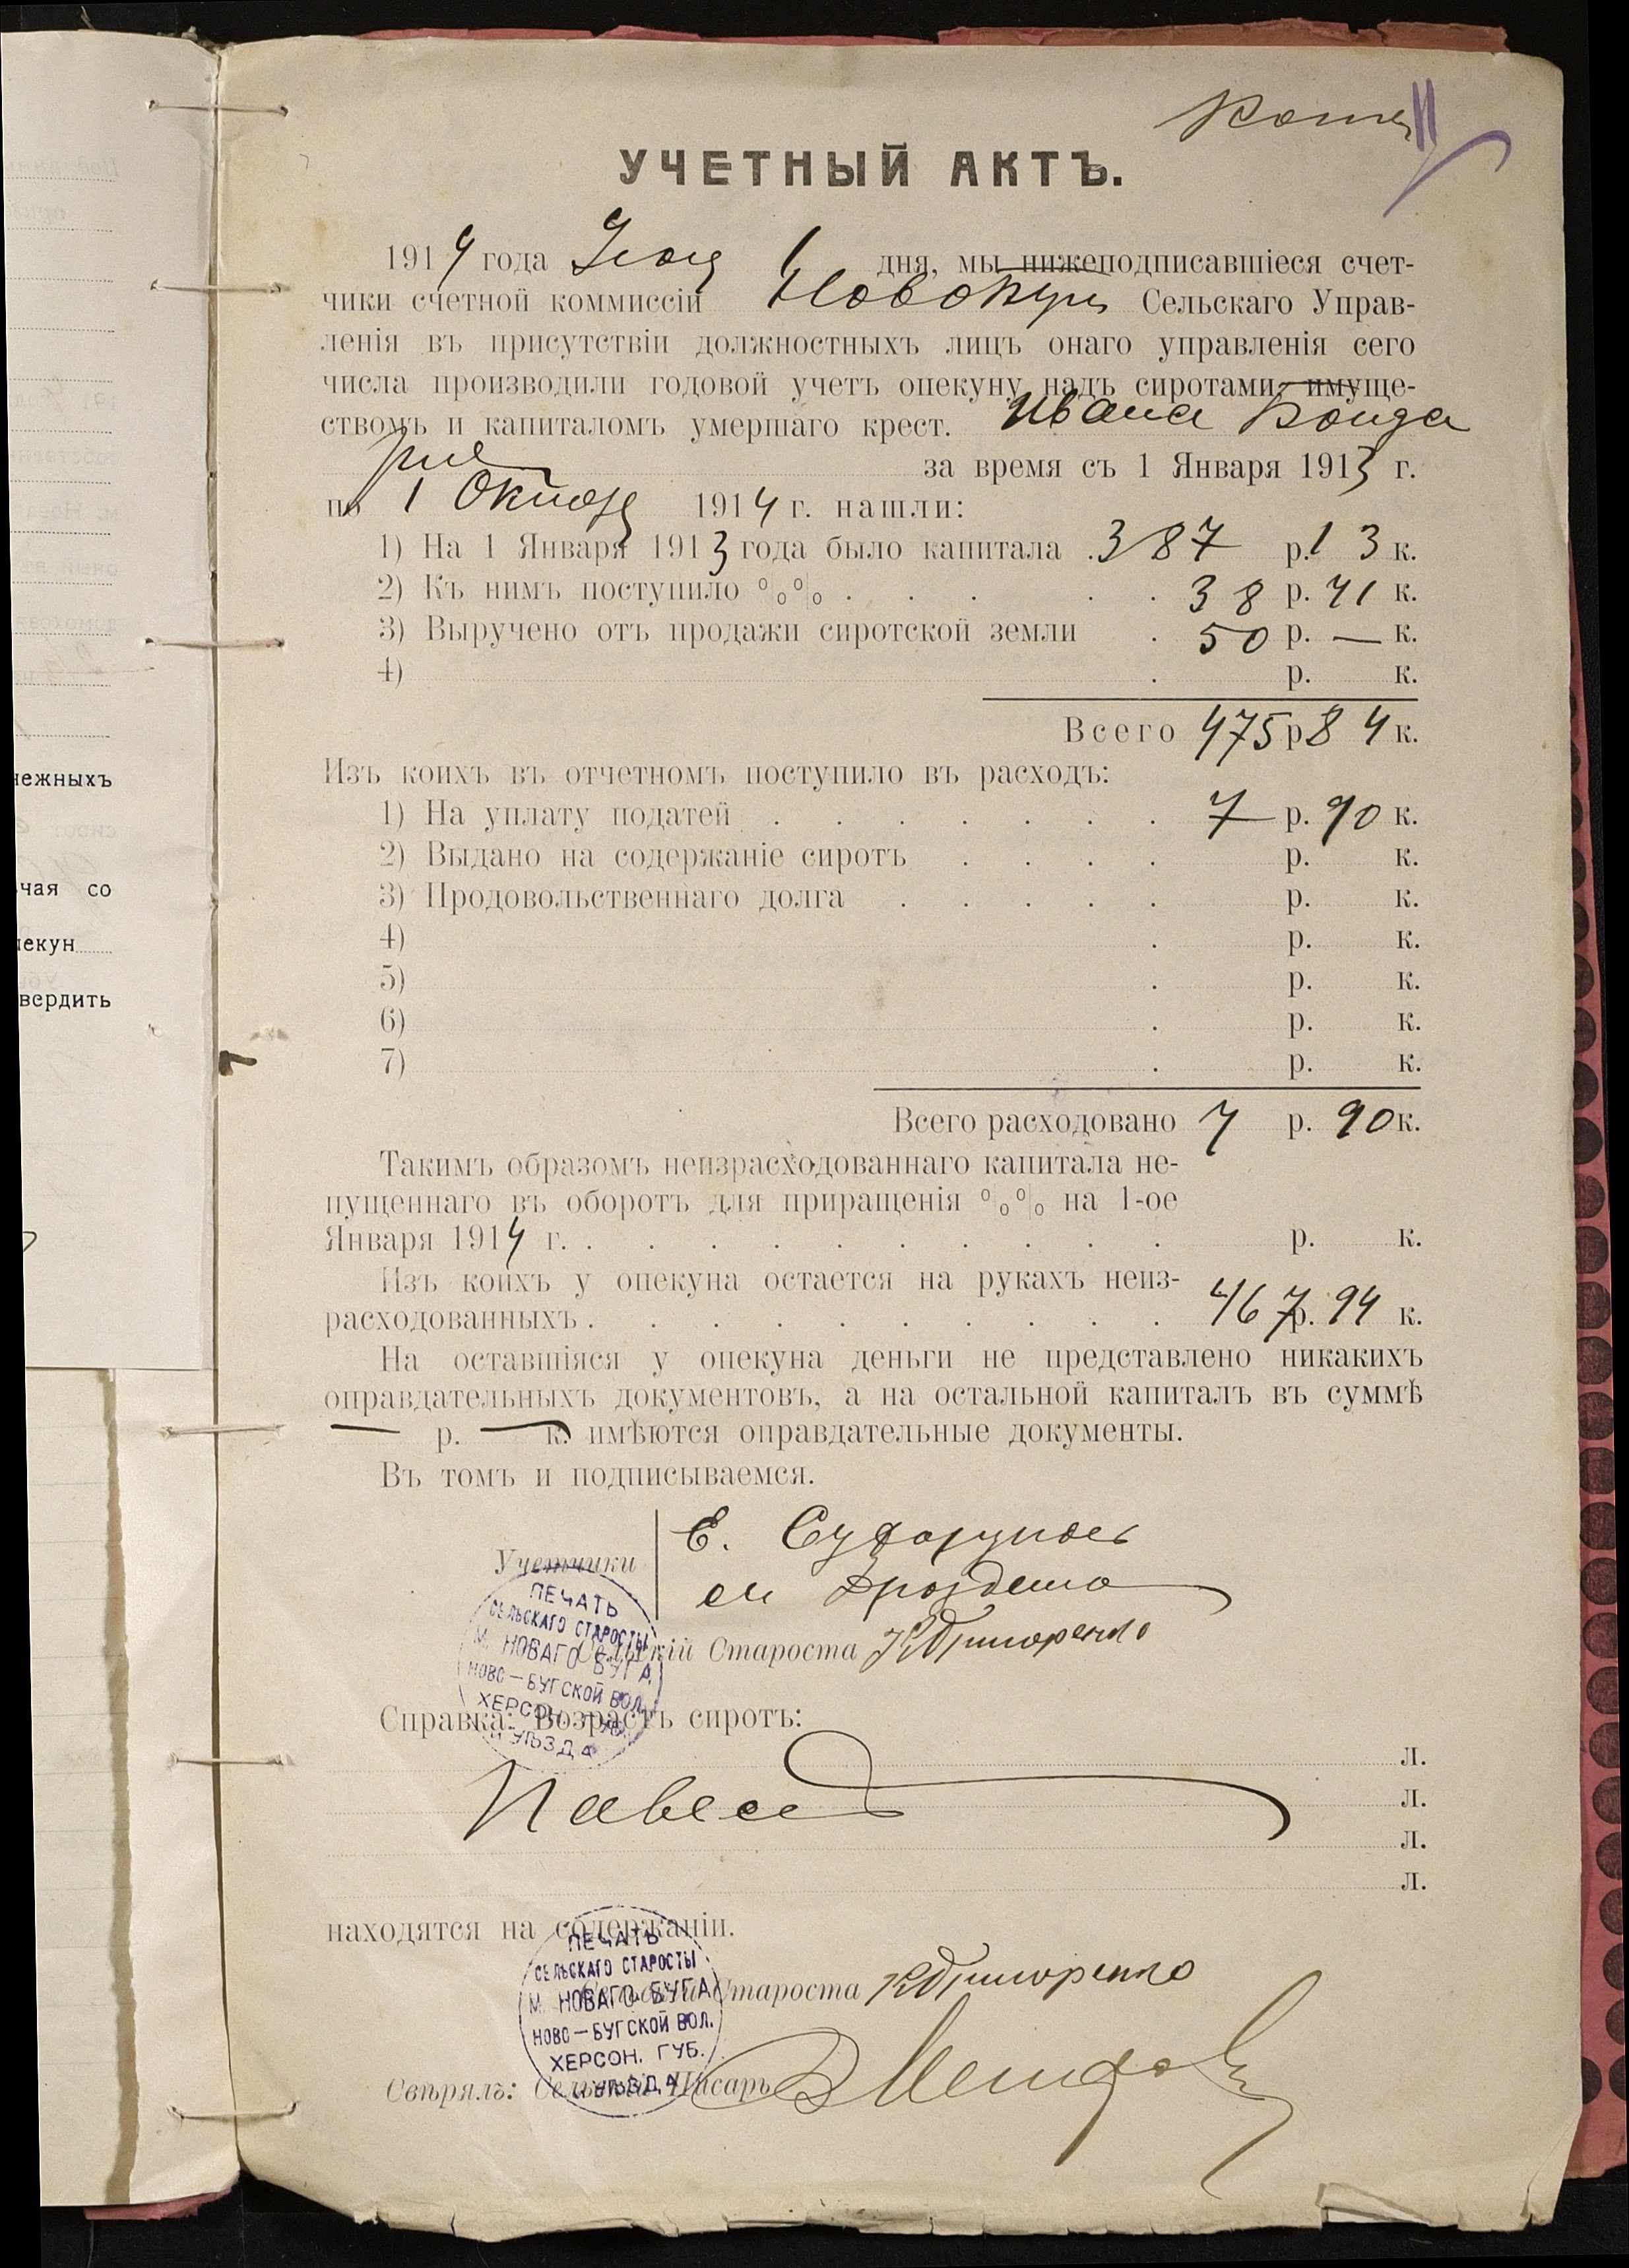 Копия
11
УЧЕТНЫЙ АКТЪ.
1914 года 1 дня, мы нижеподписавшіеся счет-
чики счетной коммиссіи Новобуг Сельскаго Управ-
ленія въ присутствіи должностныхъ лицъ онаго управленія сего
числа производили годовой учетъ опекуну надъ сиротами, имуще-
ствомъ и капиталомъ умершаго крест. Ивана Бонда
ря за время съ 1 Января 1913 г.
по 1 Октяб 1914 г. нашли:
1) На 1 Января 1913 года было капитала . 387 р. 13 к.
2) Къ нимъ поступило %% . . . . . 38 р. 71 к.
3) Выручено отъ продажи сиротской земли . 50 р. — к.
4) . р. к.
Всего 475 р 84 к.
Изъ коихъ въ отчетномъ поступило въ расходъ:
1) На уплату податей . . . . . . . 7 р. 90 к.
2) Выдано на содержаніе сиротъ . . . . р. к.
3) Продовольственнаго долга . . . . . р. к.
4) . р. к.
5) . р. к.
6) . р. к.
7) . р. к.
Всего расходовано 7 р. 90 к.
Такимъ образомъ неизрасходованнаго капитала не-
пущеннаго въ оборотъ для приращенія %% на 1-ое
Января 1914 г. . . . . . . . . . . р. к.
Изъ коихъ у опекуна остается на рукахъ неиз-
расходованныхъ . . . . . . . . . . 467 р. 94 к.
На оставшіяся у опекуна деньги не представлено никакихъ
оправдательныхъ документовъ, а на остальной капиталъ въ суммѣ
— р. — к. имѣются оправдательные документы.
Въ томъ и подписываемся.
Е.
Учетчики
ПЕЧАТЬ
СЕЛЬСКАГО СТАРОСТЫ
М. НОВАГО БУГА,
НОВО—БУГСКОЙ ВОЛ.
ХЕРСОН. ГУБ.
И УѢЗДА
Сельскій Староста
Справка: Возрастъ сиротъ:
л.
Павел л.
л.
л.
находятся на содержаніи.
ПЕЧАТЬ
СЕЛЬСКАГО СТАРОСТЫ
М. НОВАГО БУГА,
НОВО—БУГСКОЙ ВОЛ.
ХЕРСОН. ГУБ.
И УѢЗДА
Сельскій Староста
Свѣрялъ: Сельскій Писарь
нежныхъ
чая со
пекун
вердить